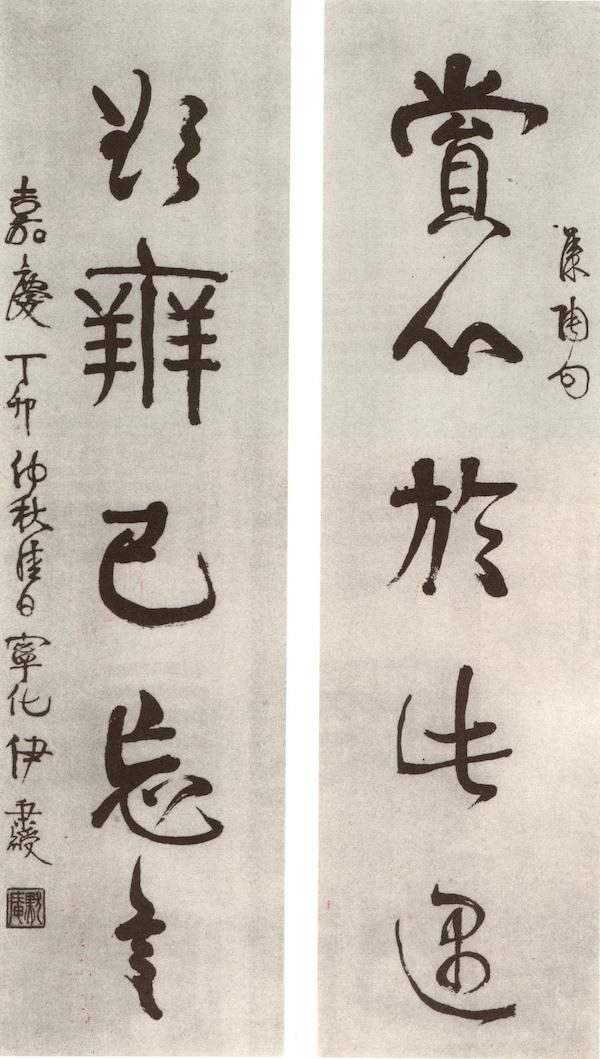 賞心於此遇
集陶句
欲辨已忘言
嘉慶丁卯仲秋佳日寧化伊秉綬